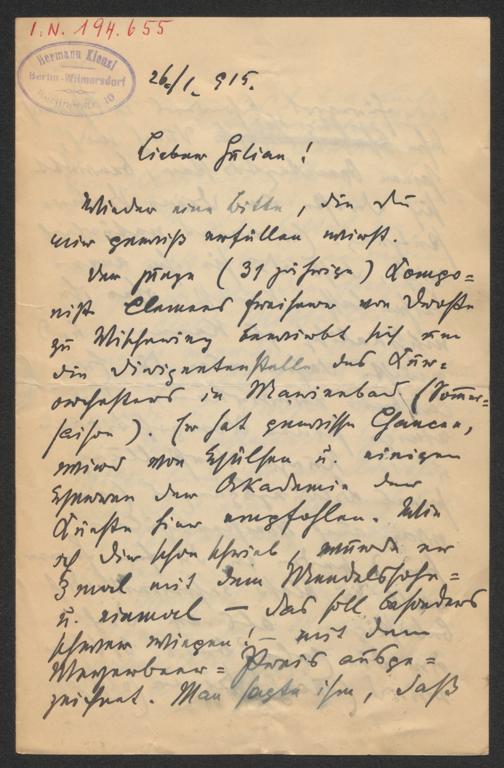 I.N. 194.655
Hermann Kienzl
Berlin-Wilmersdorf
10
26./1. 915.
Lieber Julian!
Wieder eine Bitte, die Du
mir gewiß erfüllen wirst.
Der junge (31 jährige) Kompo=
nist Clemens Freiherr von Droste
zu Vischering bewirbt sich um
die Dirigentenstelle des Kur=
orchesters in Marienbad (Sommer=
saison). Er hat gewisse Chancen,
wird von Hülsen u. einigen
Herren der Akademie der
Künste hier empfohlen. Wie
ich Dir schon schrieb, wurde er
3mal mit dem Mendelssohn=
u. einmal — das soll besonders
schwer wiegen! — mit dem
Meyerbeer=Preis ausge=
zeichnet. Man sagte ihm, daß